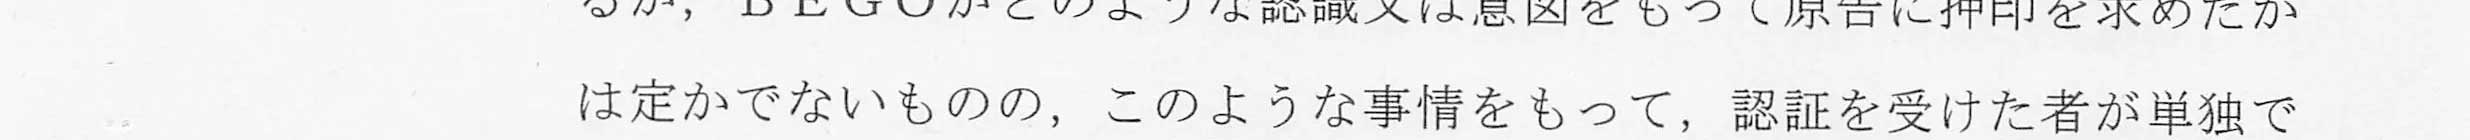 るが，ＢＥＧＯがどのような認識又は意図をもって原告に押印を求めたか
は定かでないものの，このような事情をもって，認証を受けた者が単独で